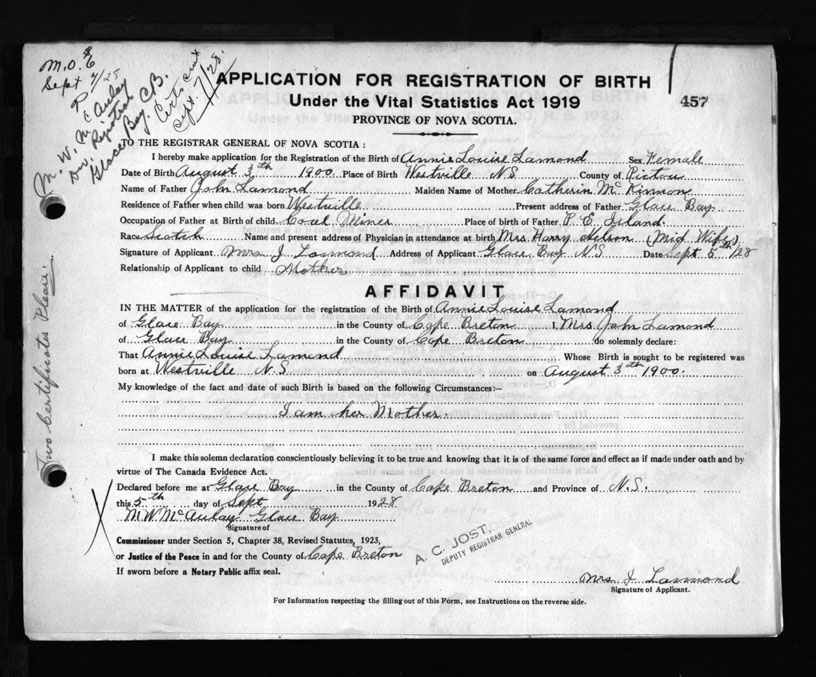 M.O. &
Sept 7/28
M. W. McAulay
Div. Registrar
Glace Bay. C.B.
Certs cut
Sept. 7/28.
APPLICATION FOR REGISTRATION OF BIRTH
Under the Vital Statistics Act 1919
457
PROVINCE OF NOVA SCOTIA.
TO THE REGISTRAR GENERAL OF NOVA SCOTIA:
I hereby make application for the Registration of the Birth of Annie Louise Lamond Sex Female
Date of Birth August 3th 1900 Place of Birth Westville N S County of Pictou
Name of Father John Lamond Maiden Name of Mother Catherin McKinnon
Residence of Father when child was born Westville Present address of Father Glace Bay
Occupation of Father at Birth of child Coal Miner Place of birth of Father P. E Island.
Race Scotch Name and present address of Physician in attendance at birth Mrs Harry Nelson (Mid Wife)
Signature of Applicant Mrs J Lamond Address of Applicant Glace Bay N.S Date Sept 5th/28
Relationship of Applicant to child Mother
AFFIDAVIT
IN THE MATTER of the application for the registration of the Birth of Annie Louise Lamond
of Glace Bay in the County of Cape Breton I, Mrs John Lamond
of Glace Bay in the County of Cape Breton do solemnly declare:
That Annie Louise Lamond Whose Birth is sought to be registered was
born at Westville N.S on August 3th 1900.
My knowledge of the fact and date of such Birth is based on the following Circumstances:—
I am her Mother.
I make this solemn declaration conscientiously believing it to be true and knowing that it is of the same force and effect as if made under oath and by
virtue of The Canada Evidence Act.
Declared before me at Glace Bay in the County of Cape Breton and Province of N.S.
this 5th day of Sept 1928
M.W. McAulay Glace Bay
Signature of
Commissioner under Section 5, Chapter 38, Revised Statutes, 1923,
or Justice of the Peace in and for the County of Cape Breton
If sworn before a Notary Public affix seal.
A. C. JOST,
DEPUTY REGISTRAR GENERAL
Mrs J Lamond
Signature of Applicant.
For Information respecting the filling out of this Form, see Instructions on the reverse side.
Two Certificates Please.